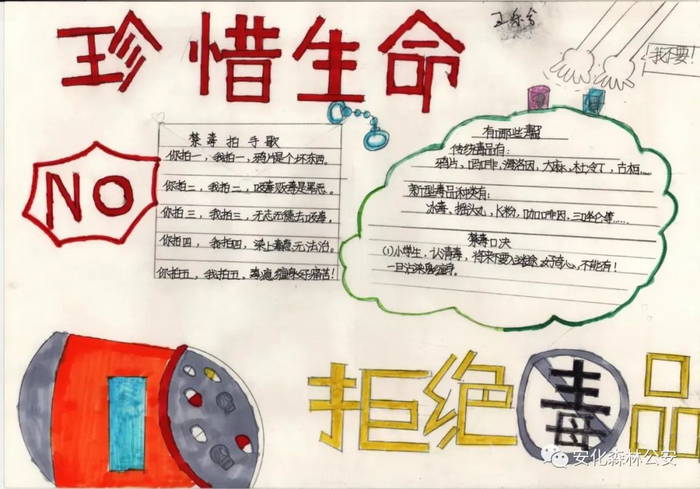 珍惜生命
我不要！
NO
禁毒拍手歌
你拍一，我拍一，鸦片是个坏东西。
你拍二，我拍二，吸毒贩毒是罪恶。
你拍三，我拍三，无志无德去吸毒。
你拍四，我拍四，染上毒瘾无法治。
你拍五，我拍五，毒瘾缠身好痛苦！
有哪些毒品
传统毒品有：
鸦片，吗啡，海洛因，大麻，杜冷丁，古柯……
新型毒品种类有：
冰毒，摇头丸，K粉，咖啡因，三唑仑等……
禁毒口决
(1)小学生，认清毒，将来不要入歧途，好奇心，不能有！
一旦沾染
拒绝毒品
安化森林公安